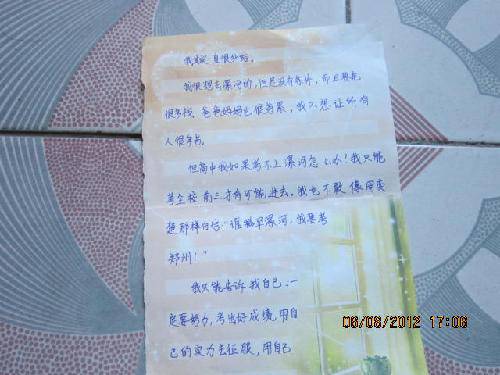 我真是自很外贴。
我很想去漯河的,但是没有条件,而且要花
很多钱,爸爸妈妈也很劳累,我不想让所有
人很辛苦。
但高中我如果考不上漯河怎么办!我只能
前三才有可能进去。我也不敢像
想那样自信:"谁稀罕漯河,我要考
郑州!"
我只能告诉我自己,一
定要努力,考出好成绩,用自
己的实力去征服,用自己
06/06/2012 17:06